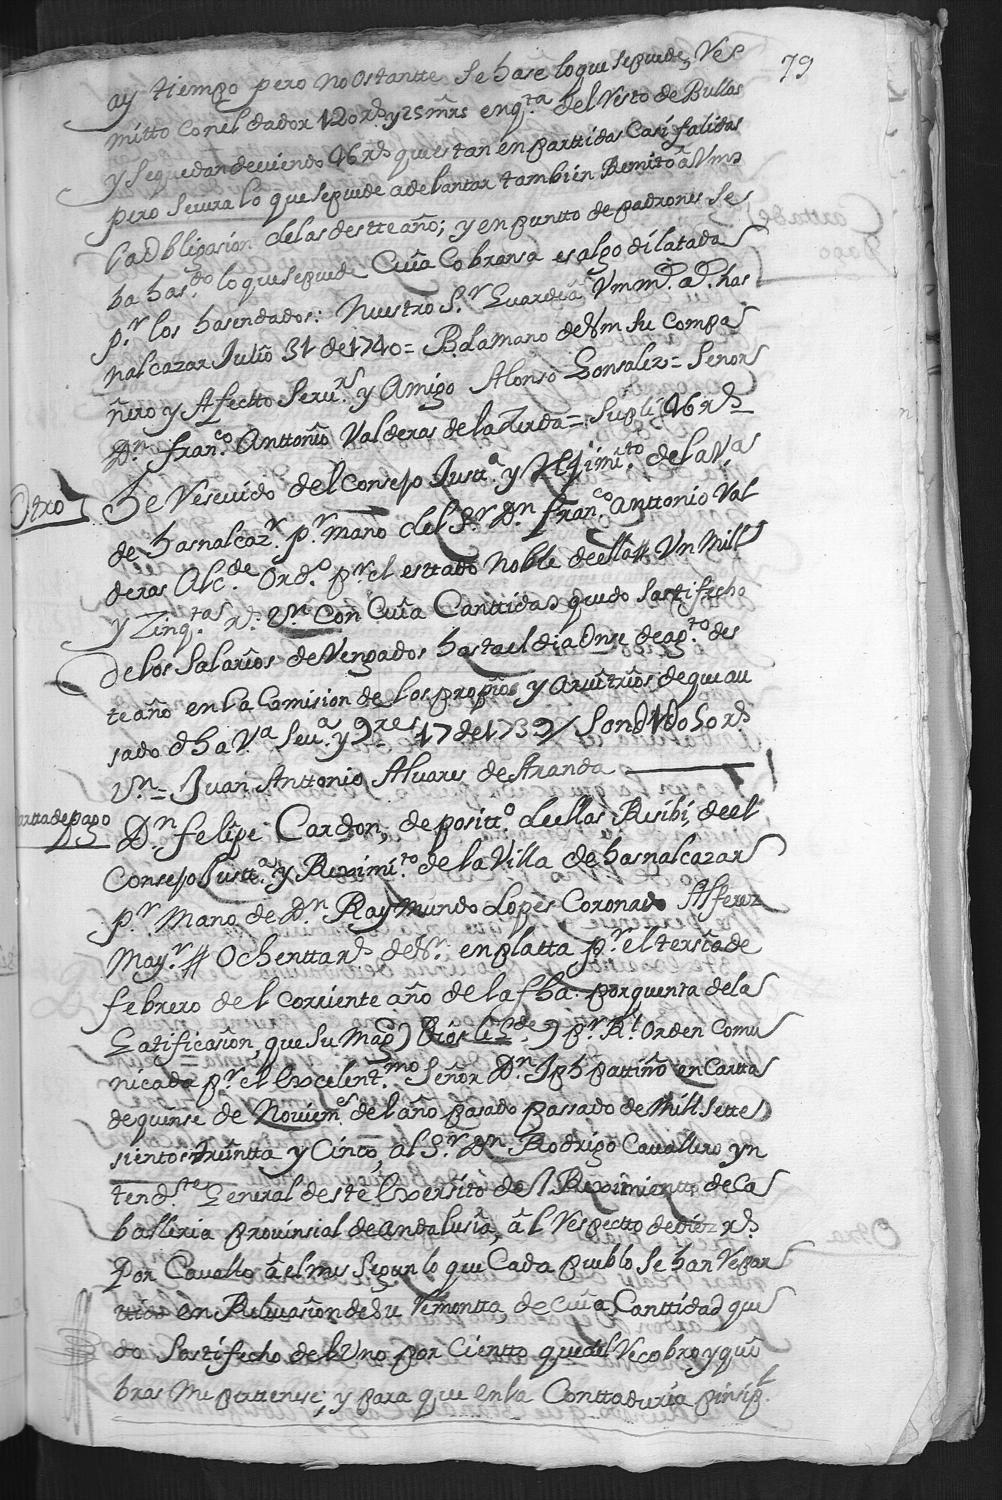 79
ay tiempo pero no ostantte se hase lo que se puede, Re
mitto con el dador 120 rs. y 25 mrs en qta. del Resto de Bullas
y se quedan deviendo 46 rs. que estan en partidas Casi falidas
pero se vera lo que se puede adelantar tambien Remito a Vmd
la obligasion de las deste año; y en puntto de padrones se
ba hasdo. lo que se puede Cuia Cobransa es algo dilatada
pr. los hasendados: Nuestro Sr. Guarde a Vmd. ms. as. has
nalcazar Julio 31 de 1740 = B. la mano de Vm su Compa
ñero y Afectto Servr. y Amigo Alonso Gonsalez = Señor
Dn. Franco. Anttonio Valderas de la Zerda = Supli 46 rs.
Otro
He Resevido del Consejo Justa. y Rejimto. de la Va.
de hasnalcazr. pr. mano del Sr. Dn. Franco. Anttonio Val
deras Alcde. Ordo. pr. el esttado Noble de ella # Un Mill
y Zinqtas. rs. Vn. Con Cuia Canttidad quedo Sattisfecho
de los Salarios deVengados hasta el dia Onse de agto. des
te año en la Comision de los propios y arvitrios de que au
sado dha Va. Seva. y 17 de 1739 / Son 1U050 rs.
Vn. = Juan Anttonio Alvares de Aranda
Cartta de pago
Dn. Felipe Cardon, depositto. de ellas Resibi de el
Consejo Justta. y Reximito. de la Villa de hasnalcazar
pr. Mano de Dn. Raymundo Lopes Coronado Alferez
Mayr. # Ochentta rs. de Vn. en platta pr. el tersio de
febrero de el corriente año de la fha. por quenta de la
Gatificasion, que Su Magd. (Dios le gde.) pr. Rl. Orden Comu
nicada pr. el Excelenttmo. Señor Dn. Jph pattiño en Cartta
de quinse de Noviemе. del año pasado passado de Mill Sette
sientos treintta y Cinco, al Sr. Dn. Rodrigo Cavallero yn
tendte. General deste Exersito de el Reximientto de Ca
balleria provinsial de Andalusia, á l Respectto de diez rs.
Por Cavallo á el mes Segun lo que Cada pueblo Se han Repar
tido en Relevasion de Su Remontta, de Cuia Canttidad que
do Sattisfecho de el Uno por Cientto que de el Recobro y qui
bras Me pertenese; y para que en la Conttaduria prinsipl.